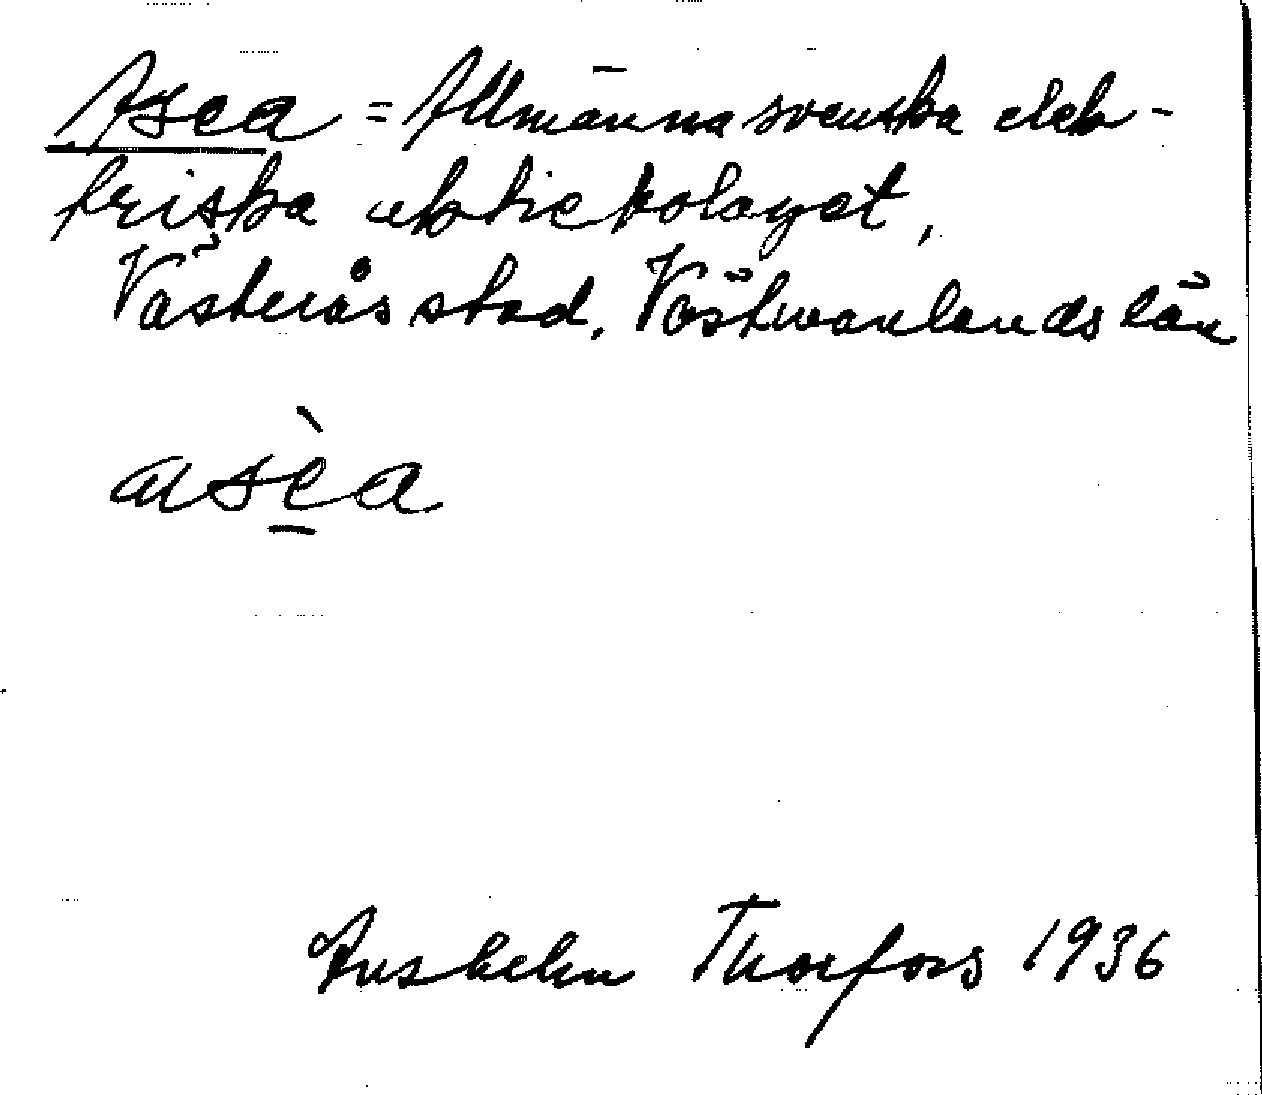 Asea = Allmänna svenska elek-
triska aktiebolaget,
Västerås stad, Västmanlands län
asèa
Anshelm Thorfors 1936